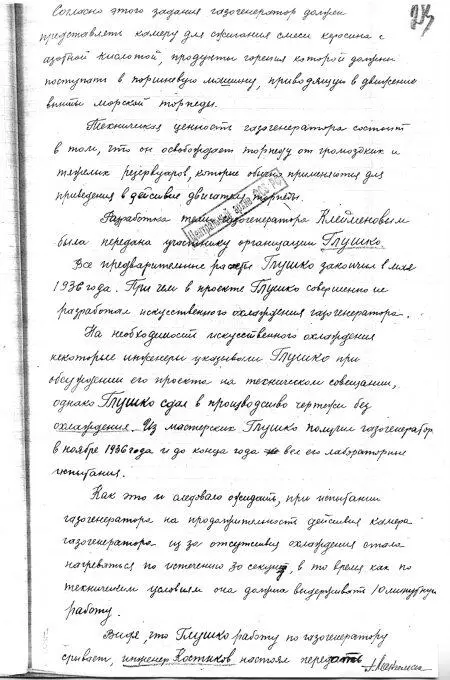 Согласно этого задания газогенератор должен
представлять камеру для сжигания смеси керосина с
азотной кислотой, продукты горения которой должны
поступать в поршневую машину, приводящую в движение
винты морской торпеды.
Техническая ценность газогенератора состоит
в том, что он освобождает торпеду от громоздких и
тяжелых резервуаров, которые обычно применяются для
приведения в действие двигателя торпеды.
Центральный архив ФСБ РФ
Разработка темы газогенератора Клейменовым
была передана участнику организации Глушко.
Все предварительные расчеты Глушко закончил в мае
1936 года. При чем в проекте Глушко совершенно не
разработал искусственного охлаждения газогенератора.
На необходимость искусственного охлаждения
некоторые инженеры указывали Глушко при
обсуждении его проекта на техническом совещании,
однако Глушко сдал в производсиво чертежи без
охлаждения. Из мастерских Глушко получил газогенератор
в ноябре 1936 года и до конца года вел его лабораторные
испытания.
Как это и следовало ожидать, при испытании
газогенератора на продолжительность действия камера
газогенератора из за отсутсвия охлаждения стала
нагреваться по истечению 30 секунд, в то время как по
техническим условиям она должна выдерживать 10 минутную
работу.
Видя, что Глушко работу по газогенератору
срывает, инженер Костиков настоял передать